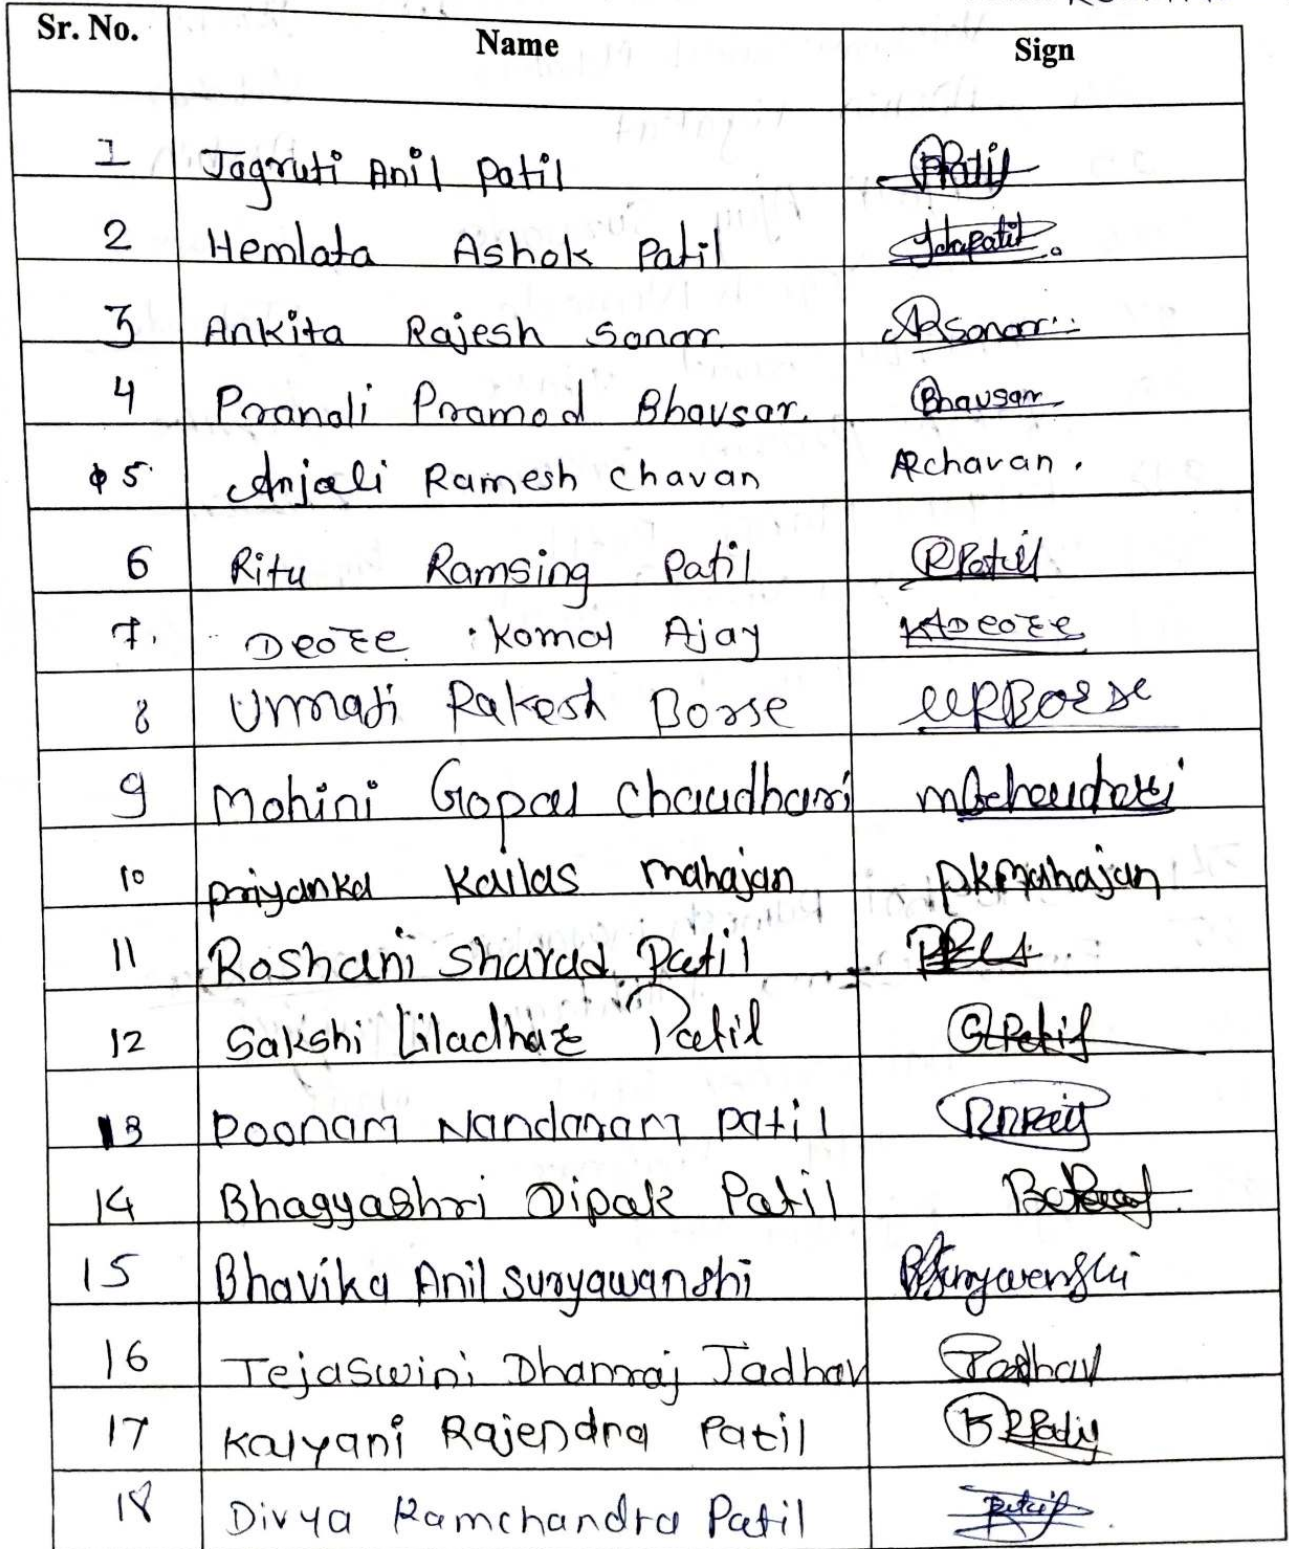 Sr. No. Name Sign
1 Jagruti Anil Patil
2 Hemlata Ashok Patil
3 Ankita Rajesh Sonar ARSonar
4 Pranali Pramod Bhavsar. Bhavsar
5 Anjali Ramesh Chavan ARchavan.
6 Ritu Ramsing Patil RPatil
7. Deore Komal Ajay KADeore
8 Unnati Rakesh Borse URBorse
9 Mohini Gopal Chaudhari mGchaudhari
10 priyanka Kailas mahajan p.k.mahajan
11 Roshani Sharad Patil
12 Sakshi Liladhar Patil
13 Poonam Nandaram patil
14 Bhagyashri Dipak Patil
15 Bhavika Anil Suryawanshi
16 Tejaswini Dhanraj Jadhav Jadhav
17 Kalyani Rajendra Patil
18 Divya Ramchandra Patil